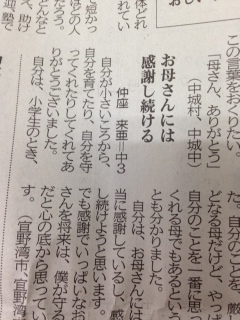 この言葉をおくりたい。
「母さん、ありがとう」
（中城村、中城中）
お母さんには
感謝し続ける
仲座　来亜＝中３
自分が小さいころから、
自分を育てたり、自分を守
ってくれたりしてくれてあ
りがとうございました。
自分は、小学生のとき、
た。自分のことを、厳
どなる母だけど、やっぱ
自分のことを一番に思っ
くれる母でもあるという
とも分かりました。
自分は、お母さんには
当に感謝しているし、感
し続けようと思います。
でも感謝でいっぱいなお
さんを将来は、僕が守る
だと心の底から思ってい
す。（宜野湾市、宜野湾